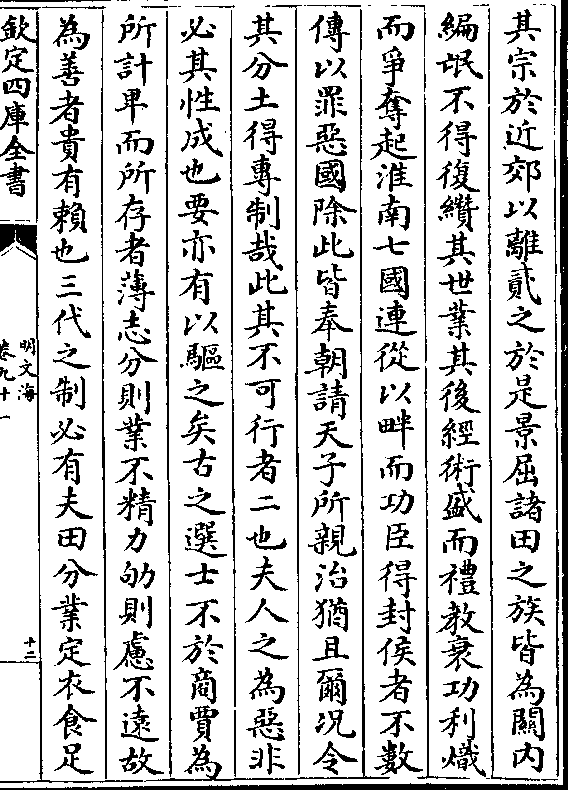 其宗於近郊以離貳之於是景屈諸田之族皆為關内
編氓不得復纘其世業其後經術盛而禮教衰功利熾
而爭奪起淮南七國連從以畔而功臣得封侯者不數
傳以罪惡國除此皆奉朝請天子所親治猶且爾况令
其分土得專制哉此其不可行者二也夫人之為惡非
必其性成也要亦有以驅之矣古之選士不於商賈為
所計卑而所存者薄志分則業不精力劬則慮不遠故
為善者貴有賴也三代之制必有夫田分業定衣食足
欽定四庫全書
明文海
卷九十一
十二